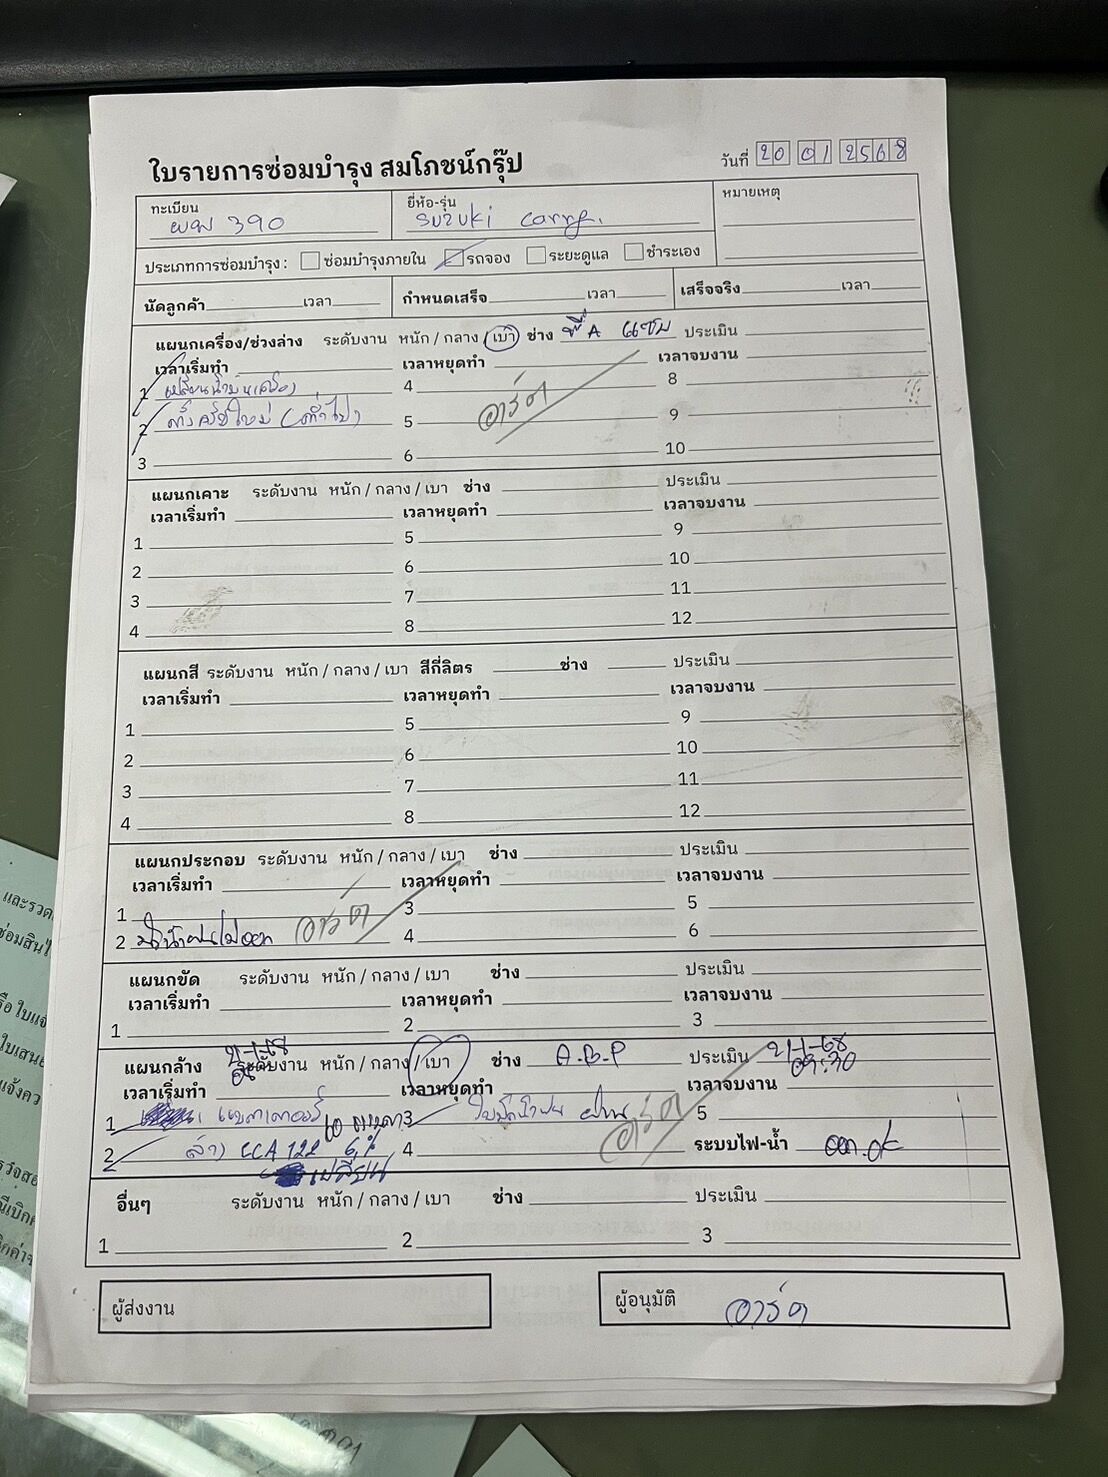 ใบรายการซ่อมบำรุง สมโภชน์กรุ๊ป
วันที่ 20 01 2568
ทะเบียน 390
ยี่ห้อ-รุ่น suzuki carry.
หมายเหตุ
ประเภทการซ่อมบำรุง : ซ่อมบำรุงภายใน รถจอง ระยะดูแล ชำระเอง
นัดลูกค้า เวลา กำหนดเสร็จ เวลา เสร็จจริง เวลา
แผนกเครื่อง/ช่วงล่าง ระดับงาน หนัก / กลาง / เบา ช่าง พี่ A แชม ประเมิน
เวลาเริ่มทำ เวลาหยุดทำ เวลาจบงาน
1 4 อาร์ต 8
2 5 9
3 6 10
แผนกเคาะ ระดับงาน หนัก / กลาง / เบา ช่าง ประเมิน
เวลาเริ่มทำ เวลาหยุดทำ เวลาจบงาน
1 5 9
2 6 10
3 7 11
4 8 12
แผนกสี ระดับงาน หนัก / กลาง / เบา สีกี่ลิตร ช่าง ประเมิน
เวลาเริ่มทำ เวลาหยุดทำ เวลาจบงาน
1 5 9
2 6 10
3 7 11
4 8 12
แผนกประกอบ ระดับงาน หนัก / กลาง / เบา ช่าง ประเมิน
เวลาเริ่มทำ เวลาหยุดทำ เวลาจบงาน
1 3 5
2 อาร์ต 4 6
แผนกขัด ระดับงาน หนัก / กลาง / เบา ช่าง ประเมิน
เวลาเริ่มทำ เวลาหยุดทำ เวลาจบงาน
1 2 3
แผนกล้าง 21-1-68 ระดับงาน หนัก / กลาง / เบา ช่าง A.B.P ประเมิน 21-1-68
เวลาเริ่มทำ เวลาหยุดทำ เวลาจบงาน
1 3 ใบปัดน้ำฝน อาร์ต 5
2 CCA 122 เปลี่ยน 4 ระบบไฟ-น้ำ ok
อื่นๆ ระดับงาน หนัก / กลาง / เบา ช่าง ประเมิน
1 2 3
ผู้ส่งงาน ผู้อนุมัติ อาร์ต